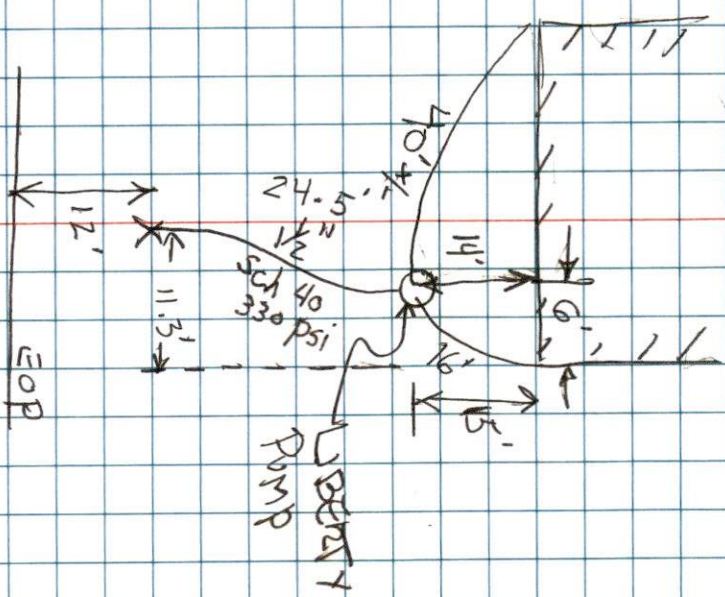 12'
EOP
11.3'
24.5'
1½"
Sch 40
330 psi
40'
14'
6'
16'
15'
LIBERTY
PUMP